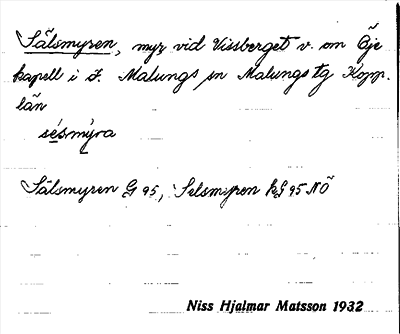 Sälsmyren, myr vid Vissberget v. om Öje
kapell i Ö. Malungs sn Malungs tg Kopp.
län
sésmýra
Sälsmyren G 95, Selsmyren kG 95 NÖ
Niss Hjalmar Matsson 1932